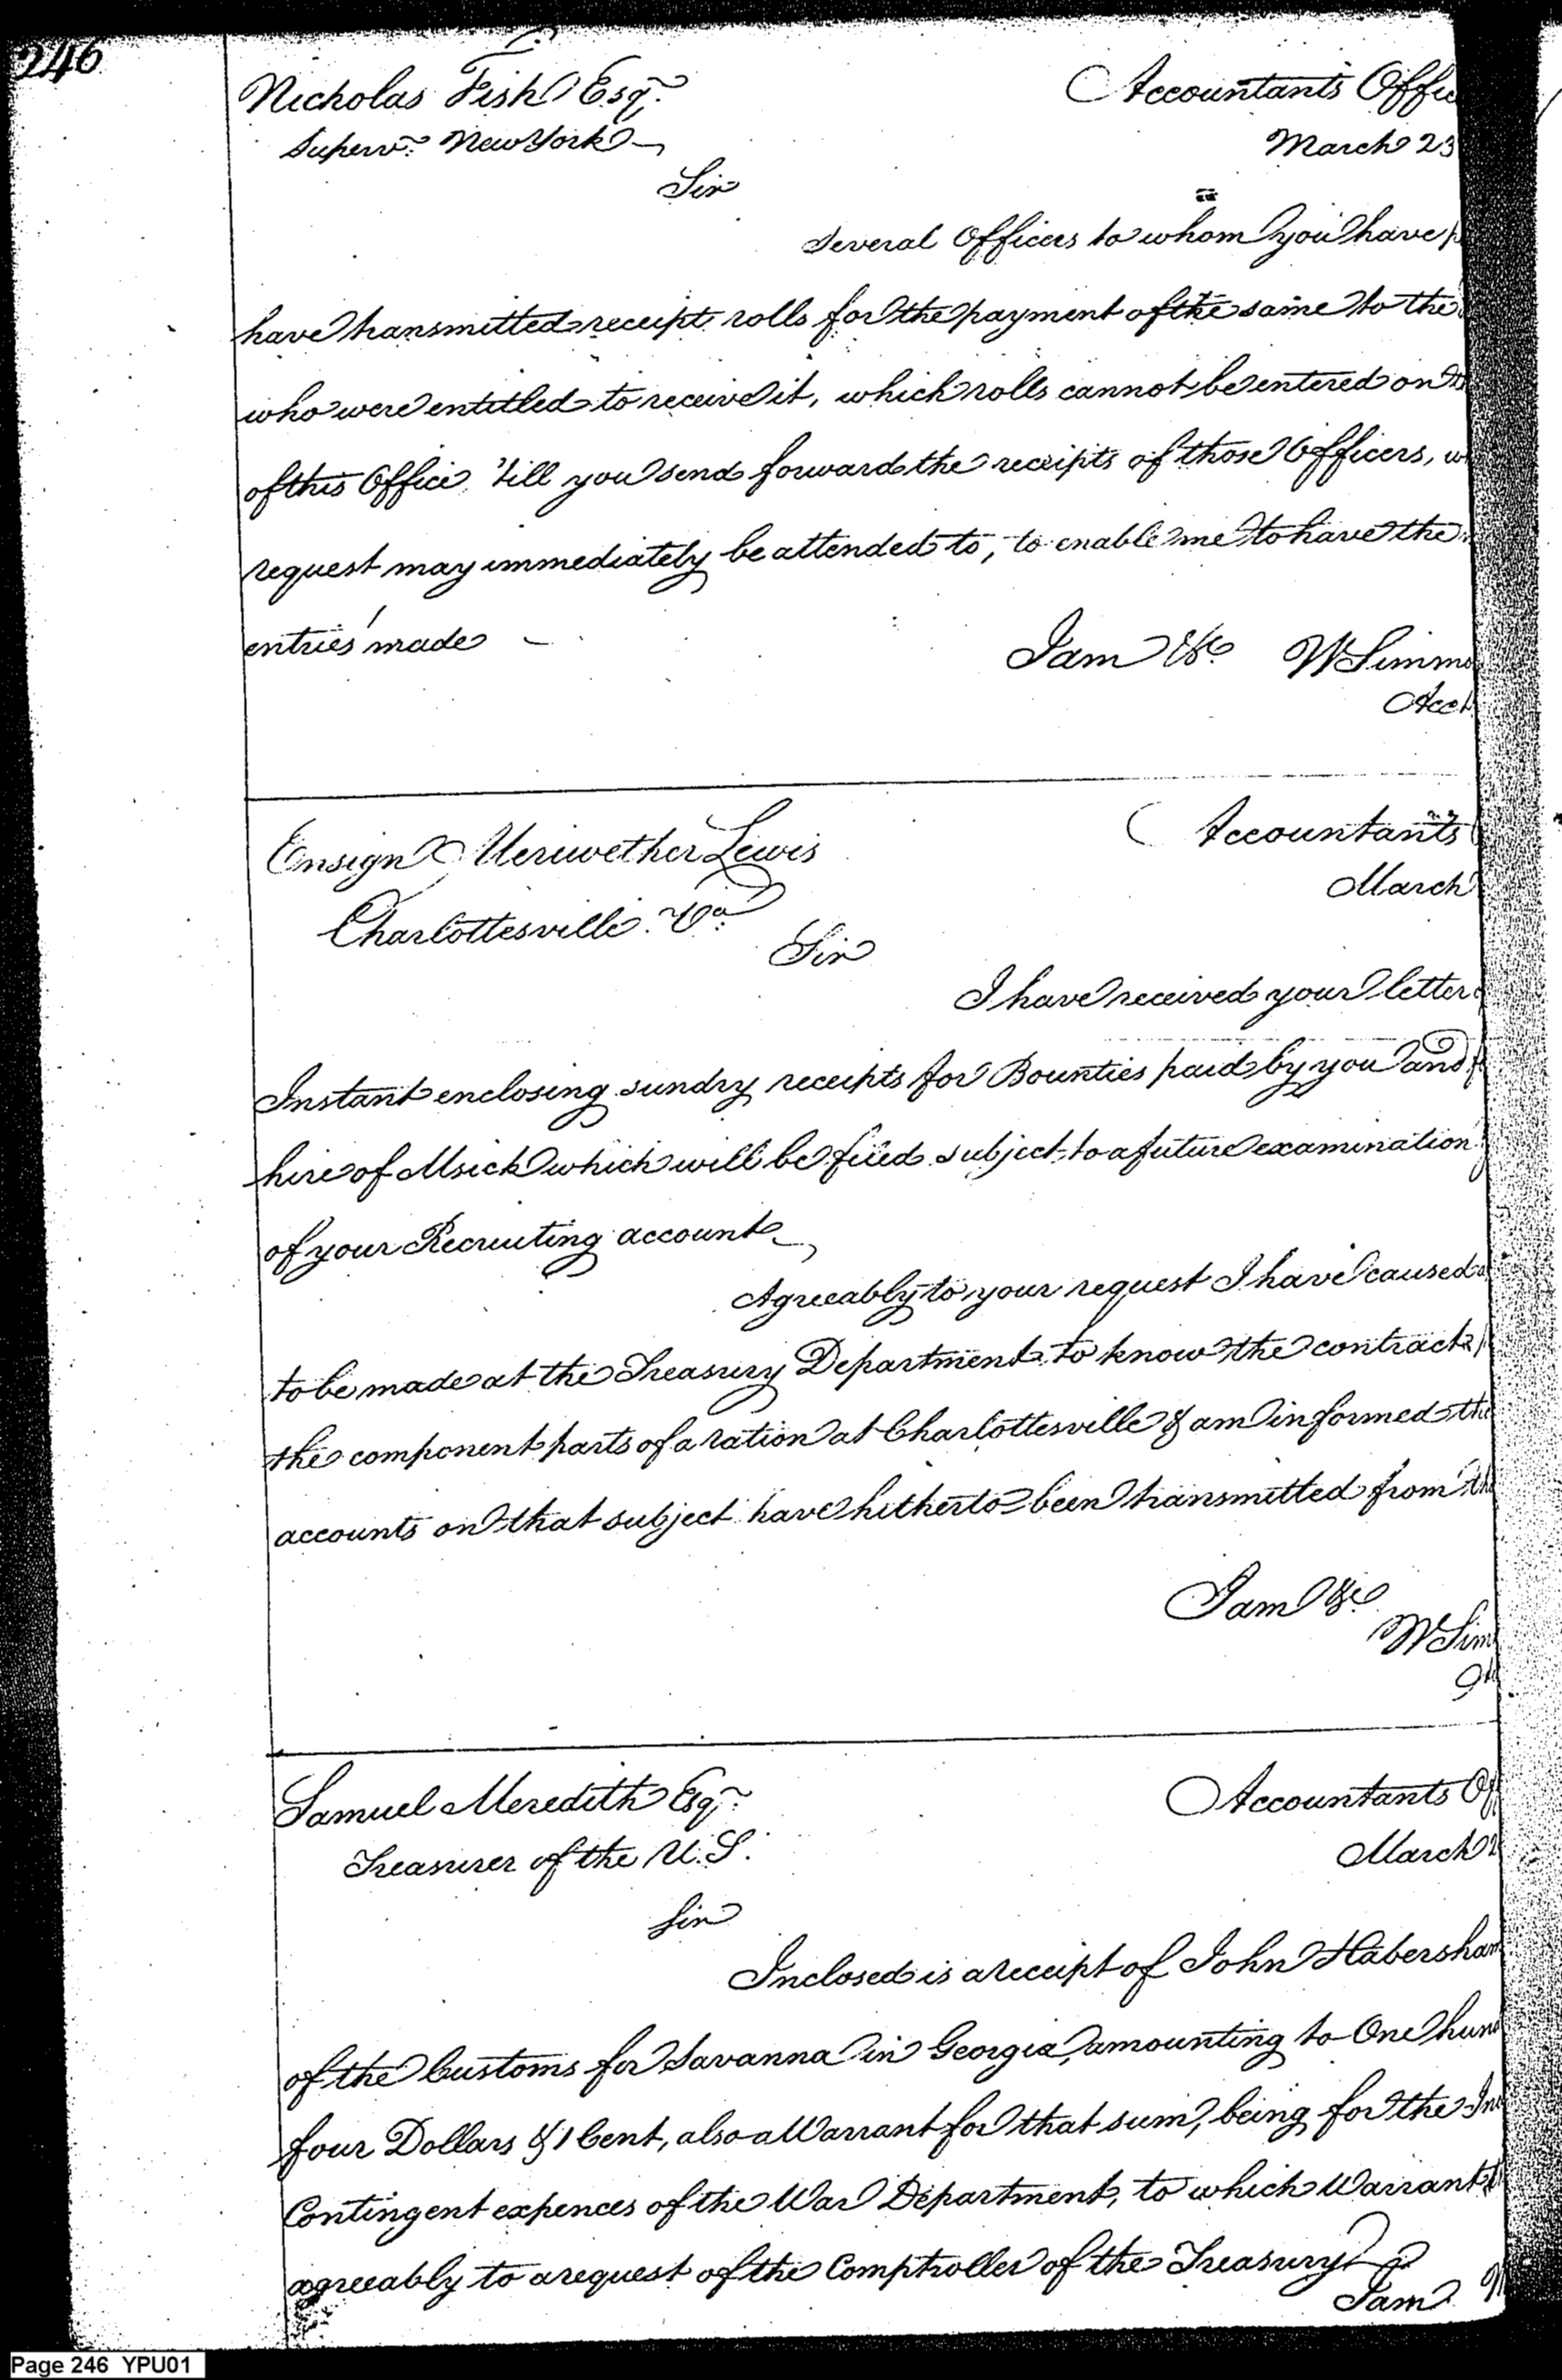 246
Nicholas Fish Esqr.
Superv.r New York
Accountants Offic
March 23
Sir
Several Officers to whom you have
have transmitted receipt rolls for the payment of the same to the
who were entitled to receive it, which rolls cannot be entered on
of this Office, 'till you send forward the receipts of those Officers,
request may immediately be attended to, to enable me to have the
entries made
I am &c. W Simmo
Acct
Ensign Meriwether Lewis
Charlottesville. Va.
Accountants
March
Sir
I have received your letter
Instant enclosing sundry receipts for Bounties paid by you and
hire of Msick which will be filed subject to a future examination
of your Recruiting account
Agreeably to your request I have caused
to be made at the Treasury Department to know the contract
the component parts of a ration at Charlottesville & am informed
accounts on that subject have hitherto been transmitted from
I am &c.
W Sim
Samuel Meredith Esqr.
Treasurer of the U.S.
Accountants Of
March 2
Sir
Inclosed is a receipt of John Habersham
of the Customs for Savanna in Georgia, amounting to One hund
four Dollars & 1 Cent, also a Warrant for that sum, being for the
Contingent expences of the War Department, to which Warrant
agreeably to a request of the Comptroller of the Treasury
I am
Page 246 YPU01